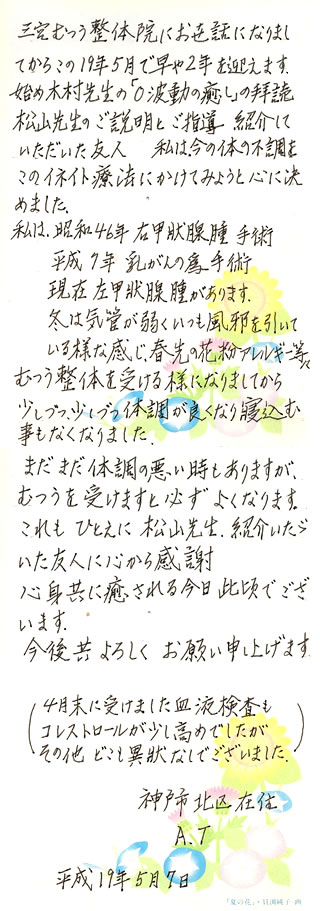 三宮むつう整体院にお世話になりまし
てからこの19年5月で早や2年を迎えます.
始め木村先生の「0波動の癒し」の拝読
松山先生のご説明とご指導 紹介して
いただいた友人 私は今の体の不調を
このイネイト療法にかけてみようと心に決
めました.
私は.昭和46年 右甲状腺腫 手術
平成7年 乳がんの為手術
現在 左甲状腺腫があります.
冬は気管が弱くいつも風邪を引いて
いる様な感じ.春先の花粉アレルギー等々
むつう整体を受ける様になりましてから
少しづつ.少しづつ体調が良くなり寝込む
事もなくなりました.
まだまだ体調の悪い時もありますが、
むつうを受けますと必ずよくなります.
これも ひとえに 松山先生.紹介いただ
いた友人に心から感謝
心身共に癒される今日此頃でござ
います.
今後共よろしく お願い申し上げます
(4月末に受けました血液検査も
コレストロールが少し高めでしたが
その他 どこも異状なしでございました.)
神戸市 北区 在住
A.T
平成19年5月7日
「夏の花」・貝渕純子 画